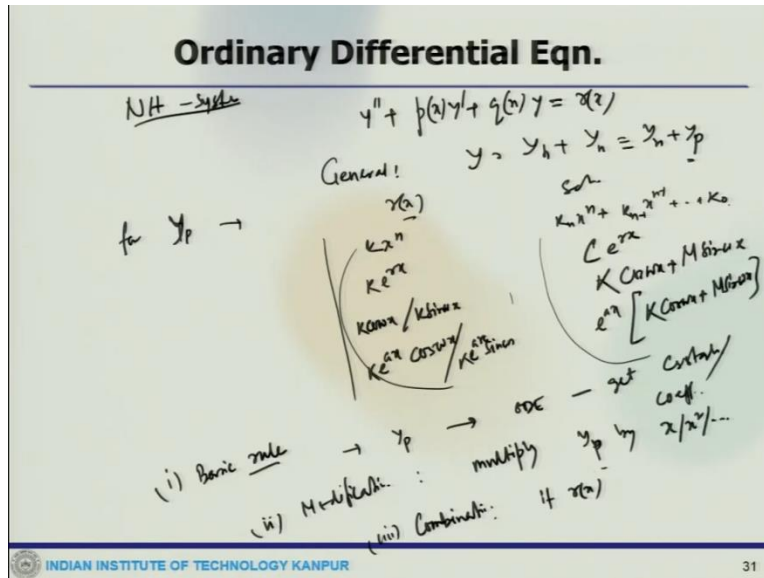 Ordinary Differential Eqn.
NH - System
y'' + p(x)y' + q(x)y = r(x)
General: y = yh + yn = yh + yp
for yp → r(x) Soln
Kx^n Knx^n + Kn-1x^n-1 + ... + K0
Ke^rx Ce^rx
Kcosωx/Ksinωx Kcosωx + Msinωx
Ke^ax cosωx/Ke^ax sinωx e^ax [Kcosωx + Msinωx]
(i) Basic rule → yp → ODE - get constants/coeff.
(ii) Modification: multiply yp by x/x²/...
(iii) Combination: if r(x)
INDIAN INSTITUTE OF TECHNOLOGY KANPUR
31